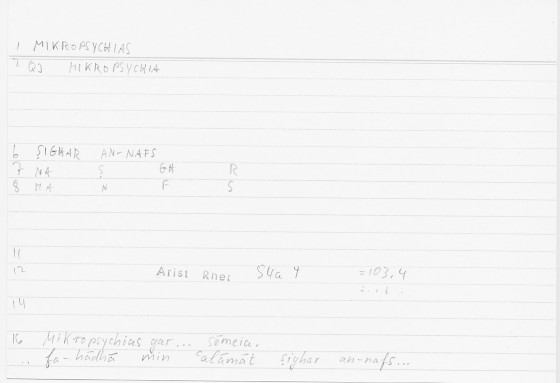 1 MIKROPSYCHIAS
2 QJ MIKROPSYCHIA
6 ṢIGHAR AN-NAFS
7 NA Ṣ GH R
8 MA N F S
11
12 Arist Rhet 84a 4 =103.4
14
16 Mikropsychias gar... sēmeia.
.. fa-hādhā min ʿalāmāt ṣighar an-nafs...